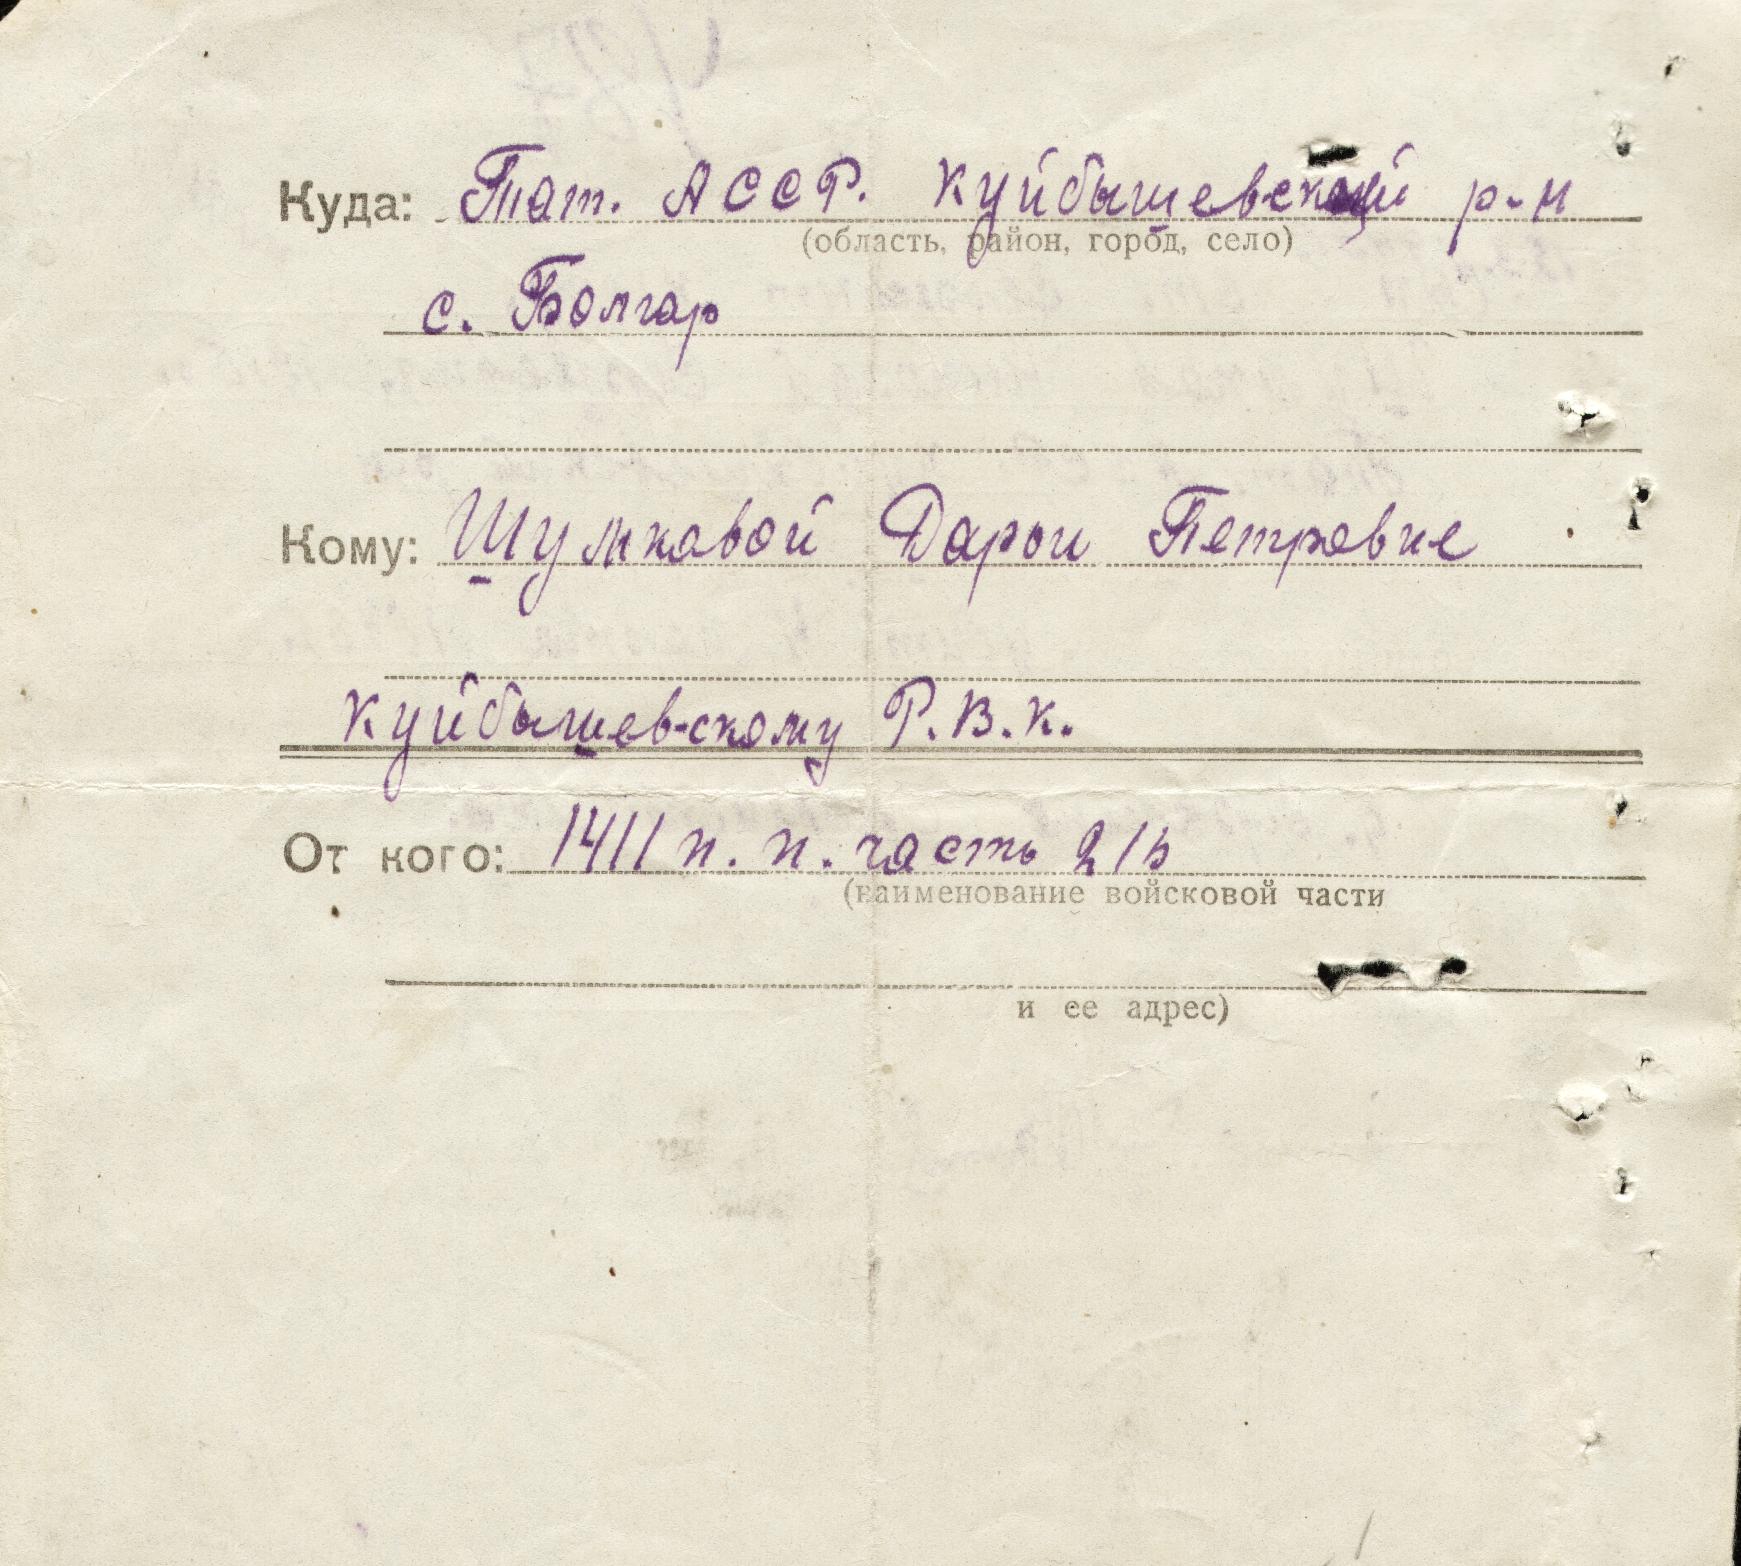 Куда: Тат. АССР. Куйбышевский р-н
(область, район, город, село)
с. Болгар
Кому: Шулиховой Дарьи Петровне
Куйбышевскому Р.В.К.
От кого: 1411 п.п. часть 21b
(наименование войсковой части
и ее адрес)